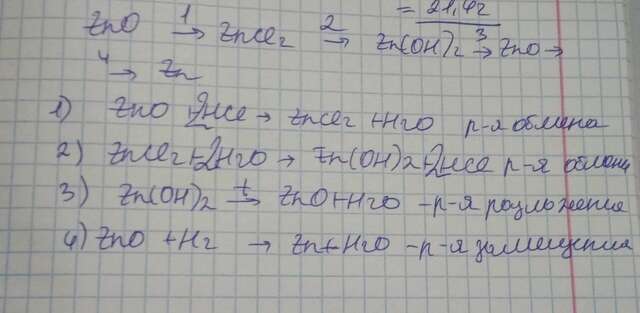 = 21,4г
ZnO 1→ ZnCl2 2→ Zn(OH)2 3→ ZnO →
4→ Zn
1) ZnO 2HCl → ZnCl2 + H2O р-я обмена
2) ZnCl2 + 2H2O → Zn(OH)2 + 2HCl р-я обмена
3) Zn(OH)2 t→ ZnO + H2O - р-я разложения
4) ZnO + H2 → Zn + H2O - р-я замещения